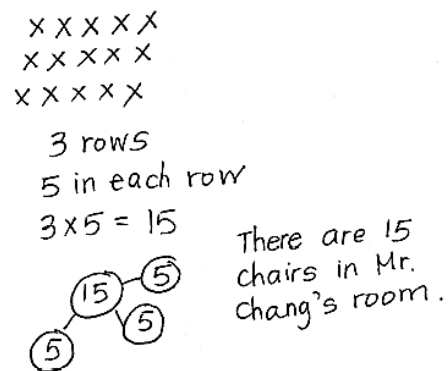 x x x x x
x x x x x
x x x x x
3 rows
5 in each row
3 x 5 = 15
15 5
5
5
There are 15
chairs in Mr.
Chang's room.